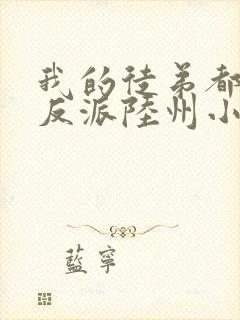 我的徒弟都
反派陸州小
藍寧